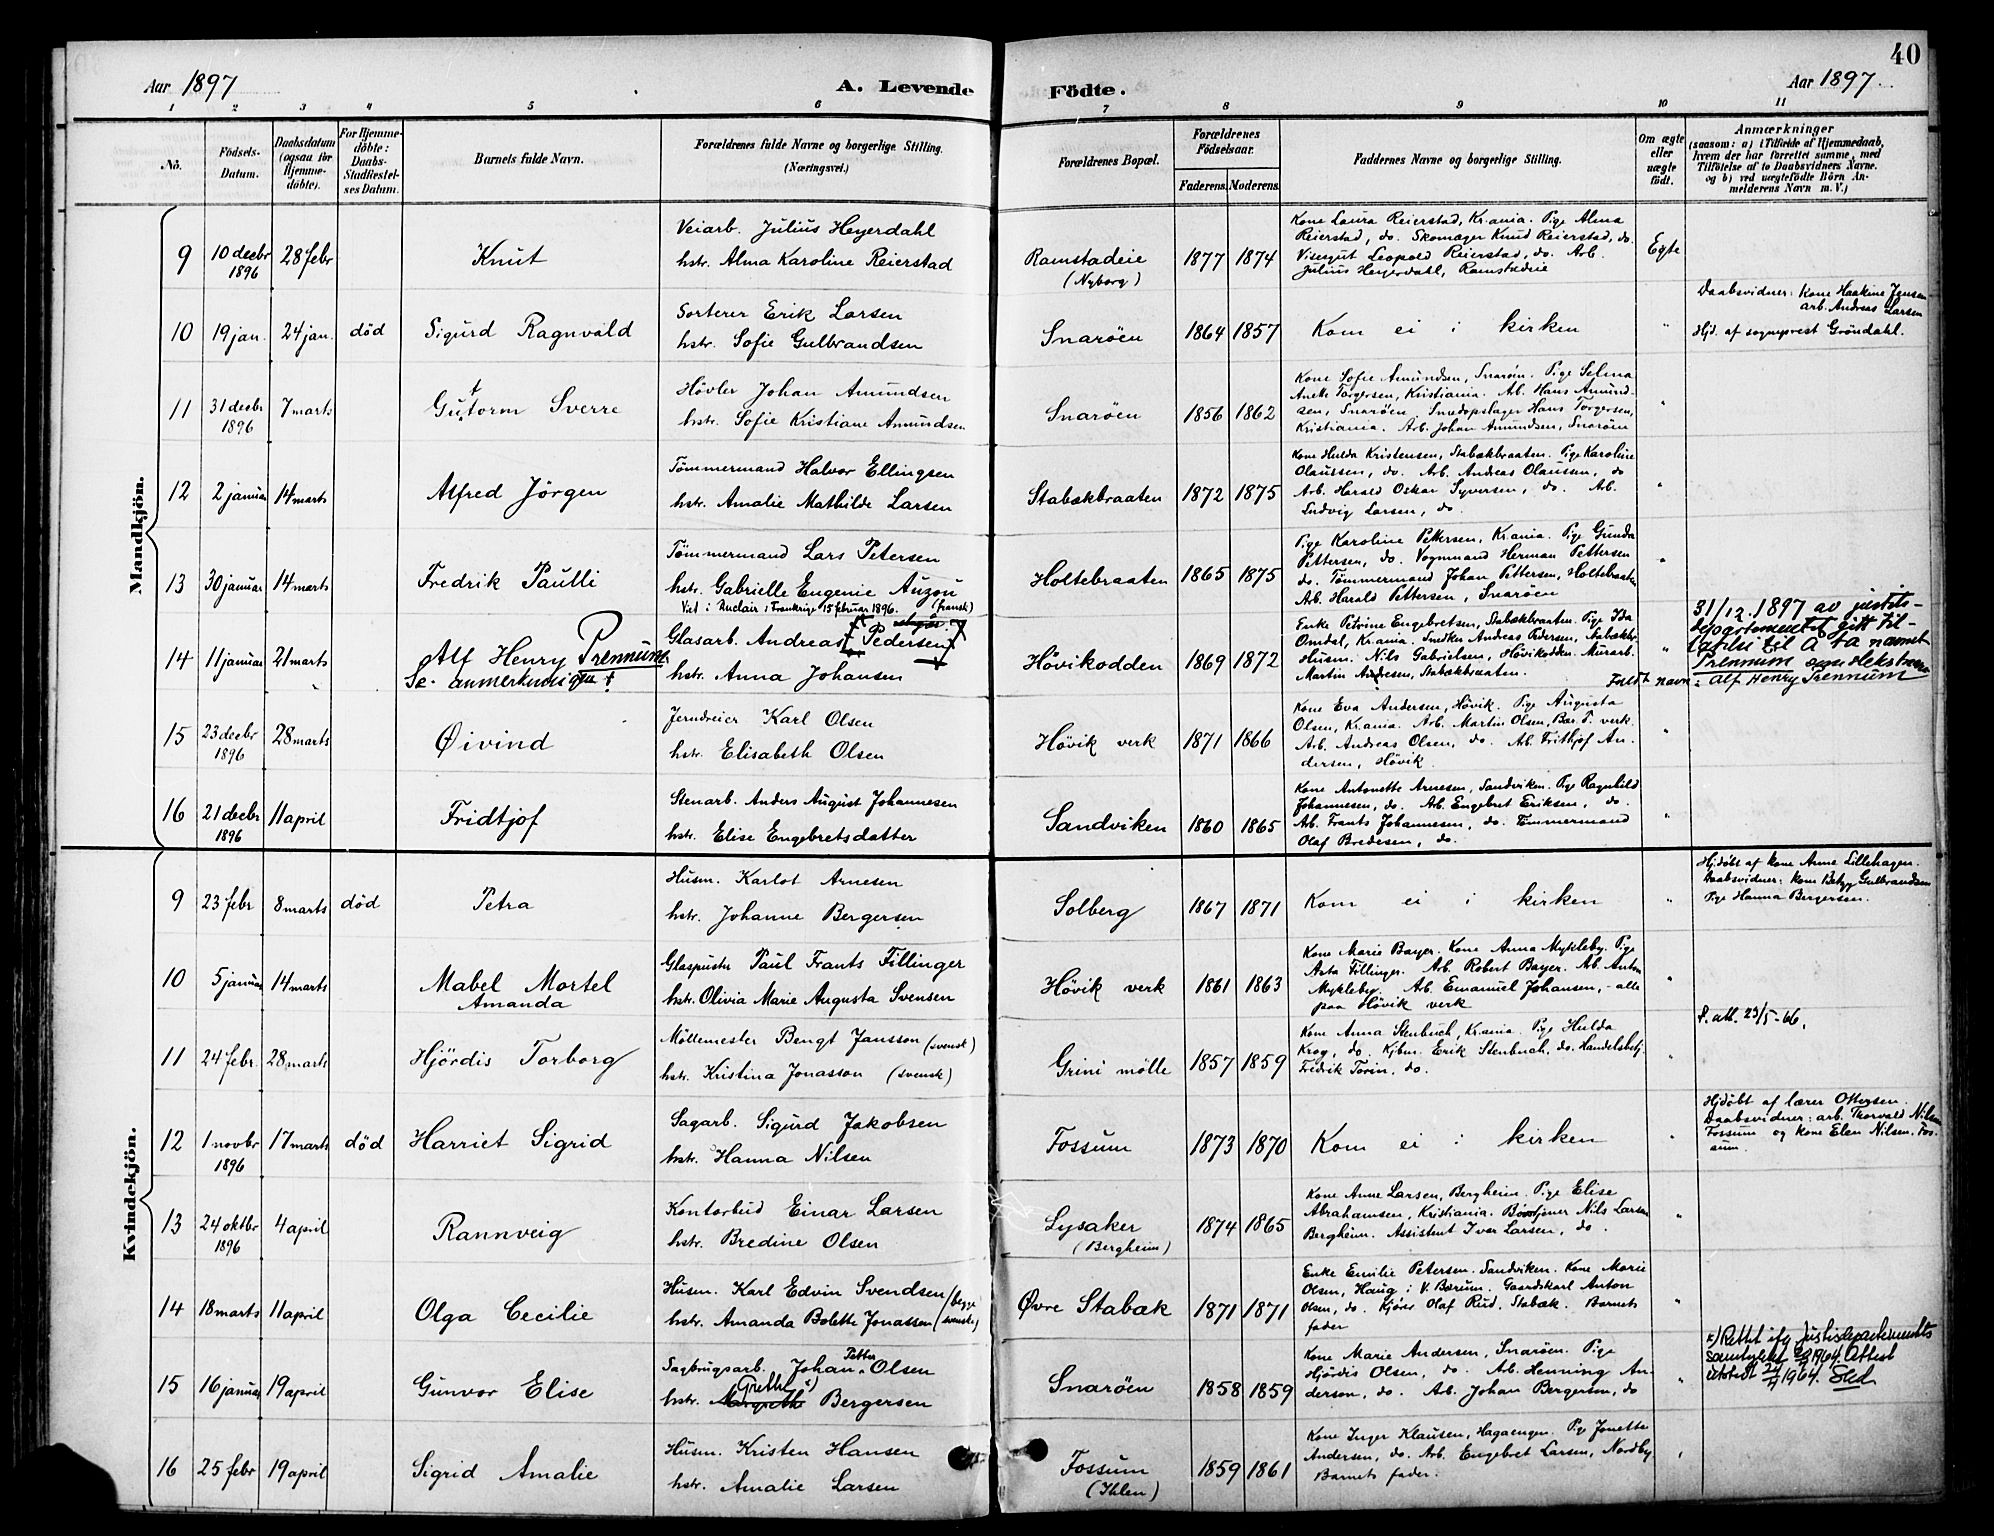 40
Aar 1897
A. Levende
Födte.
Aar 1897.
1 2 3 4 5 6 7 8 9 10 11
No.
Födsels-
Datum.
Daabsdatum
(ogsaa for
Hjemme-
döbte).
For Hjemme-
döbte:
Daabs-
Stadfæstel-
ses Datum.
Barnets fulde Navn.
Forældrenes fulde Navne og borgerlige Stilling.
(Næringsvei.)
Forældrenes Bopæl.
Forældrenes
Födselsaar.
Faderens.
Moderens.
Faddernes Navne og borgerlige Stilling.
Om ægte
eller
uægte
födt.
Anmærkninger
(saasom: a) i Tilfælde af Hjemmedaab,
hvem der har forrettet samme, med
Tilföielse af to Daabsvidners Navne.
og b) ved uægtefödte Börn An-
melderens Navn m. V.)
Mandkjön.
9
10 decbr
1896
28 febr
Knut
Veiarb. Julius Heyerdahl
hstr. Alma Karoline Reierstad
Ramstadeie
(Nyborg)
1877
1874
Kone Laura Reierstad, Kr.ania. Pige Alma
Reierstad, do. Skomager Knud Reierstad, do.
Visergut Leopold Reierstad, do. Arb.
Julius Heyerdahl, Ramstadeie
Egte
10
19 jan.
24 jan.
död
Sigurd Ragnvald
Sorterer Erik Larsen
hstr. Sofie Gulbrandsen
Snaröen
1864
1857
Kom ei i kirken
"
Daabsvidner: Kone Haakine Jensen
arb. Andreas Larsen
Hjd. af sogneprest Gröndahl.
11
31 decbr
1896
7 marts
Guttorm Sverre
Hövler Johan Amundsen
hstr. Sofie Kristiane Amundsen
Snaröen
1856
1862
Kone Sofie Amundsen, Snaröen. Pige Selma
Anette Torgersen, Kristiania. Arb. Hans Amund-
sen, Snaröen. Hans Torgersen,
Kristiania. Arb. Johan Amundsen, Snaröen
"
12
2 januar
14 marts
Alfred Jörgen
Tömmermand Halvor Ellingsen
hstr. Amalie Mathilde Larsen
Stabækbraaten
1872
1875
Kone Hulda Kristensen, Stabækbraaten. Pige Karoline
Olaussen, do. Arb. Andreas Olaussen, do
Arb. Harald Oskar Syversen, do. Arb.
Ludvig Larsen, do.
"
13
30 januar
14 marts
Fredrik Paulli
Tömmermand Lars Petersen
hstr. Gabrielle Eugenie Auzou
Viet i Auclair i Frankrige 15 februar 1896. (fransk)
Holtebraaten
1865
1875
Pige Karoline Pettersen, Kr.ania. Pige Gunda
Pettersen, do. Vognmand Herman Pettersen
do. Tömmermand Johan Pettersen, Holtebraaten
Arb. Harald Pettersen, Snaröen
"
14
11 januar
21 marts
Alf Henry Prennum
Se anmerkningen †
Glasarb. Andreas Pedersen
hstr. Anna Johansen
Hövikodden
1869
1872
Enke Petrine Engebretsen, Stabækbraaten. Pige Ida
Omdal, Kr.ania. Snedker Andreas Pedersen, Stabækbr.
Husm. Nils Gabrielsen, Hövikodden. Murarb.
Martin Andresen, Stabækbraaten.
"
31/12. 1897 av justits-
departementet gitt til-
latelse til å ta navnet
Prennum som slektsnavn
Fuldt navn: Alf Henry Prennum
15
23 decbr
1896
28 marts
Øivind
Jerndreier Karl Olsen
hstr. Elisabeth Olsen
Hövik verk
1871
1866
Kone Eva Andersen, Hövik. Pige Augusta
Olsen, Kr.ania. Arb. Martin Olsen, Bær. P. verk.
Arb. Andreas Olsen, do. Arb. Frithjof An-
dersen, Hövik.
"
16
21 decbr
1896
11 april
Fridtjof
Stenarb. Anders August Johannesen
hstr. Elise Engebretsdatter
Sandviken
1860
1865
Kone Antonette Arnesen, Sandviken. Pige Ragnhild
Johannesen, do. Arb. Engebret Eriksen, do.
Arb. Frants Johannesen, do. Tömmermand
Olaf Bredesen, do.
"
Kvindekjön.
9
23 febr
8 marts
död
Petra
Husm. Karlot Arnesen
hstr. Johanne Bergersen
Solberg
1867
1871
Kom ei i kirken
"
Hjdöbt af kone Anne Lillehagen.
Daabsvidner: kone Betzy Gulbrandsen
Pige Hanna Bergersen.
10
5 januar
14 marts
Mabel Mortel
Amanda
Glaspuster Paul Frants Fillinger
hstr. Olivia Marie Augusta Svensen
Hövik verk
1861
1863
Kone Marie Bayer. Kone Anna Mykleby. Pige
Asta Fillinger. Arb. Robert Bayer. Arb. Anton
Mykleby. Arb. Emanuel Johansen, - alle
paa Hövik verk
"
11
24 febr.
28 marts
Hjördis Torborg
Möllemester Bengt Jansson (svensk)
hstr. Kristina Jonasson (svensk)
Grini mölle
1857
1859
Kone Anna Stenbuch, Kr.ania. Pige Hulda
Krog, do. Kjbm. Erik Stenbuch, do. Handelsbetj.
Fredrik Torin, do.
"
F. att. 23/5-66.
12
1 novbr
1896
17 marts
död
Harriet Sigrid
Sagarb. Sigurd Jakobsen
hstr. Hanna Nilsen
Fossum
1873
1870
Kom ei i kirken
"
Hjdöbt af lærer Ottersen.
Daabsvidner: arb. Thorvald Nilsen
Fossum og kone Elen Nilsen, Fos-
sum.
13
24 oktbr
1896
4 april
Rannveig
Kontorbud Einar Larsen
hstr. Bredine Olsen
Lysaker
(Bergheim)
1874
1865
Kone Anne Larsen, Bergheim. Pige Elise
Abrahamsen, Kristiania. Nils Larsen
Bergheim. Assistent Ivar Larsen, do.
"
14
18 marts
11 april
Olga Cecilie
Husm. Karl Edvin Svendsen (begge
hstr. Amanda Bolette Jonasson (svenske)
Øvre Stabæk
1871
1871
Enke Emilie Petersen, Sandviken. Kone Marie
Olsen, Haug i V. Bærum. Gaardskarl Anton
Olsen, do. Kjörer Olaf Rud, Stabæk. Barnets
fader
"
15
16 januar
19 april
Gunvor Elise
Petter
Sagbrugsarb. Johan Olsen
Grethe x)
hstr. Margrethe Bergersen
Snaröen
1858
1859
Kone Marie Andersen, Snaröen. Pige
Hjördis Olsen, do. Arb. Henning An-
dersen, do. Arb. Johan Bergersen, do
"
x) Rettet ifg Justisdepartementets
samtykke 1964. Attest
utstedt 1964.
16
25 febr
19 april
Sigrid Amalie
Husm. Kristen Hansen
hstr. Amalie Larsen
Fossum
(Ihlen)
1859
1861
Kone Inger Klausen, Hagaengen. Pige Jonette
Andersen, do. Arb. Engebret Larsen, Nordby
Barnets fader.
"